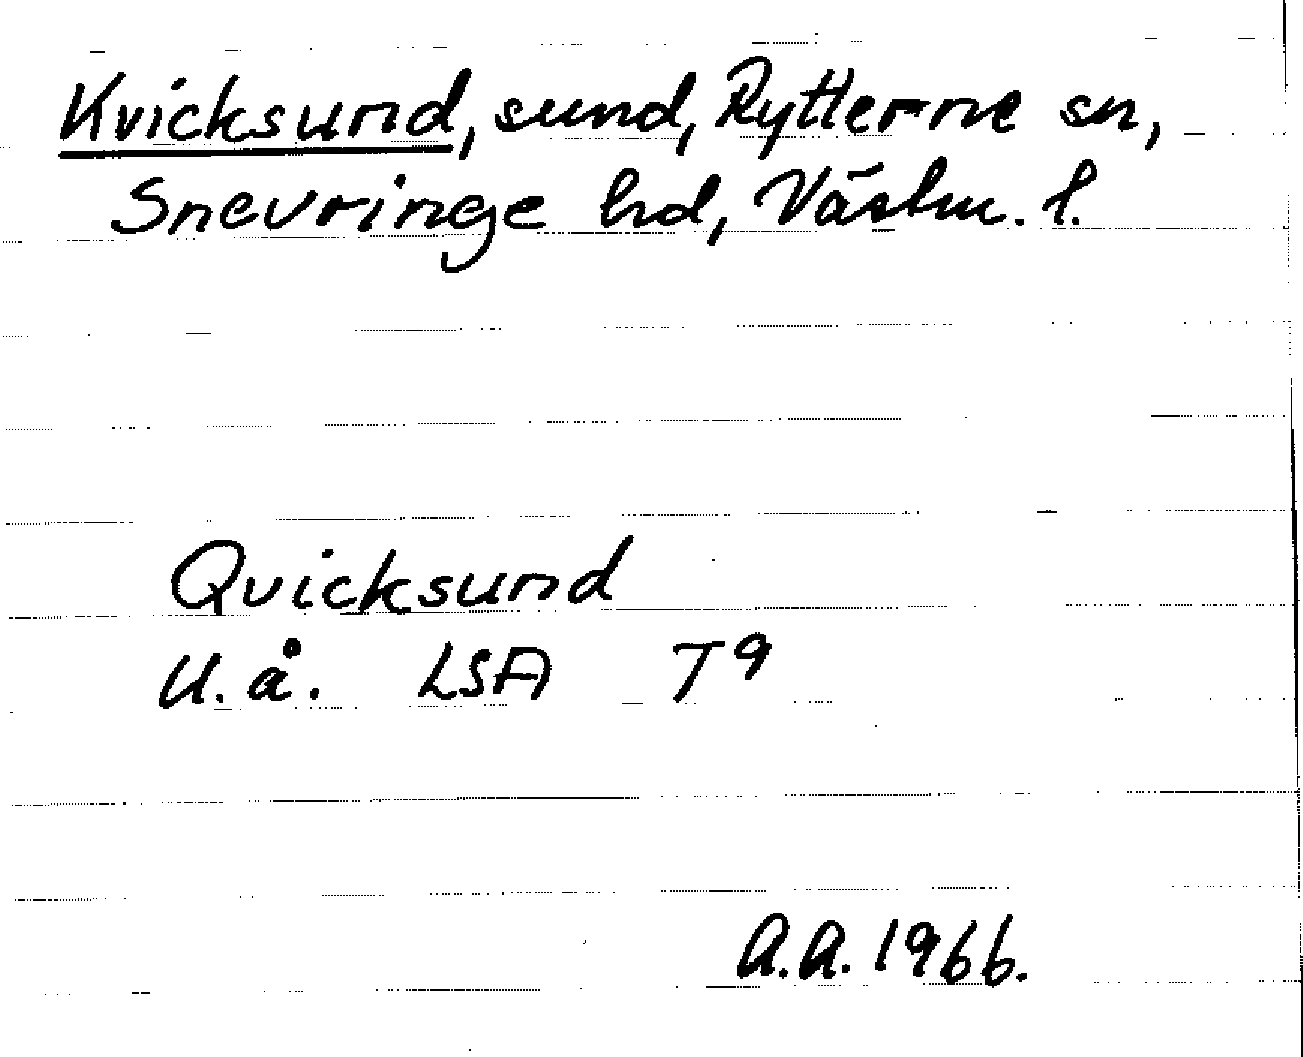 Kvicksund, sund, Rytterne sn,
Snevringe hd, Västm. l.
Quicksund
U.å. LSA T9
A.A. 1966.